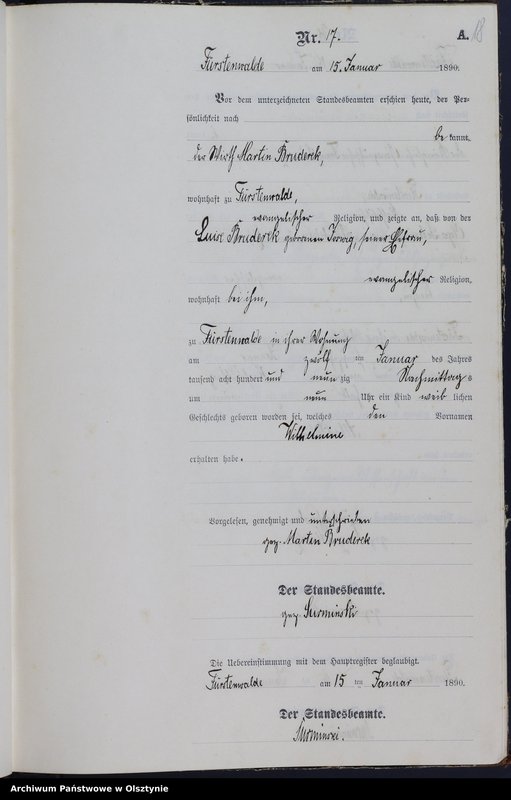 18
Nr. 17.
A.
Fürstenwalde am 15. Januar 1890.
Vor dem unterzeichneten Standesbeamten erschien heute, der Per-
sönlichkeit nach
be kannt,
der Wirth Martin Bruderek,
wohnhaft zu Fürstenwalde,
evangelischer Religion, und zeigte an, daß von der
Luise Bruderek geborenen seiner Ehefrau,
evangelischer Religion,
wohnhaft bei ihm,
zu Fürstenwalde in ihrer Wohnung
am zwölf ten Januar des Jahres
tausend acht hundert und neun zig Nachmittag s
um neun Uhr ein Kind weib lichen
Geschlechts geboren worden sei, welches den Vornamen
Wilhelmine
erhalten habe.
Vorgelesen, genehmigt und unterschrieben
gez. Martin Bruderek
Der Standesbeamte.
gez. Surminski
Die Uebereinstimmung mit dem Hauptregister beglaubigt.
Fürstenwalde am 15 ten Januar 1890.
Der Standesbeamte.
Surminski.
Archiwum Państwowe w Olsztynie